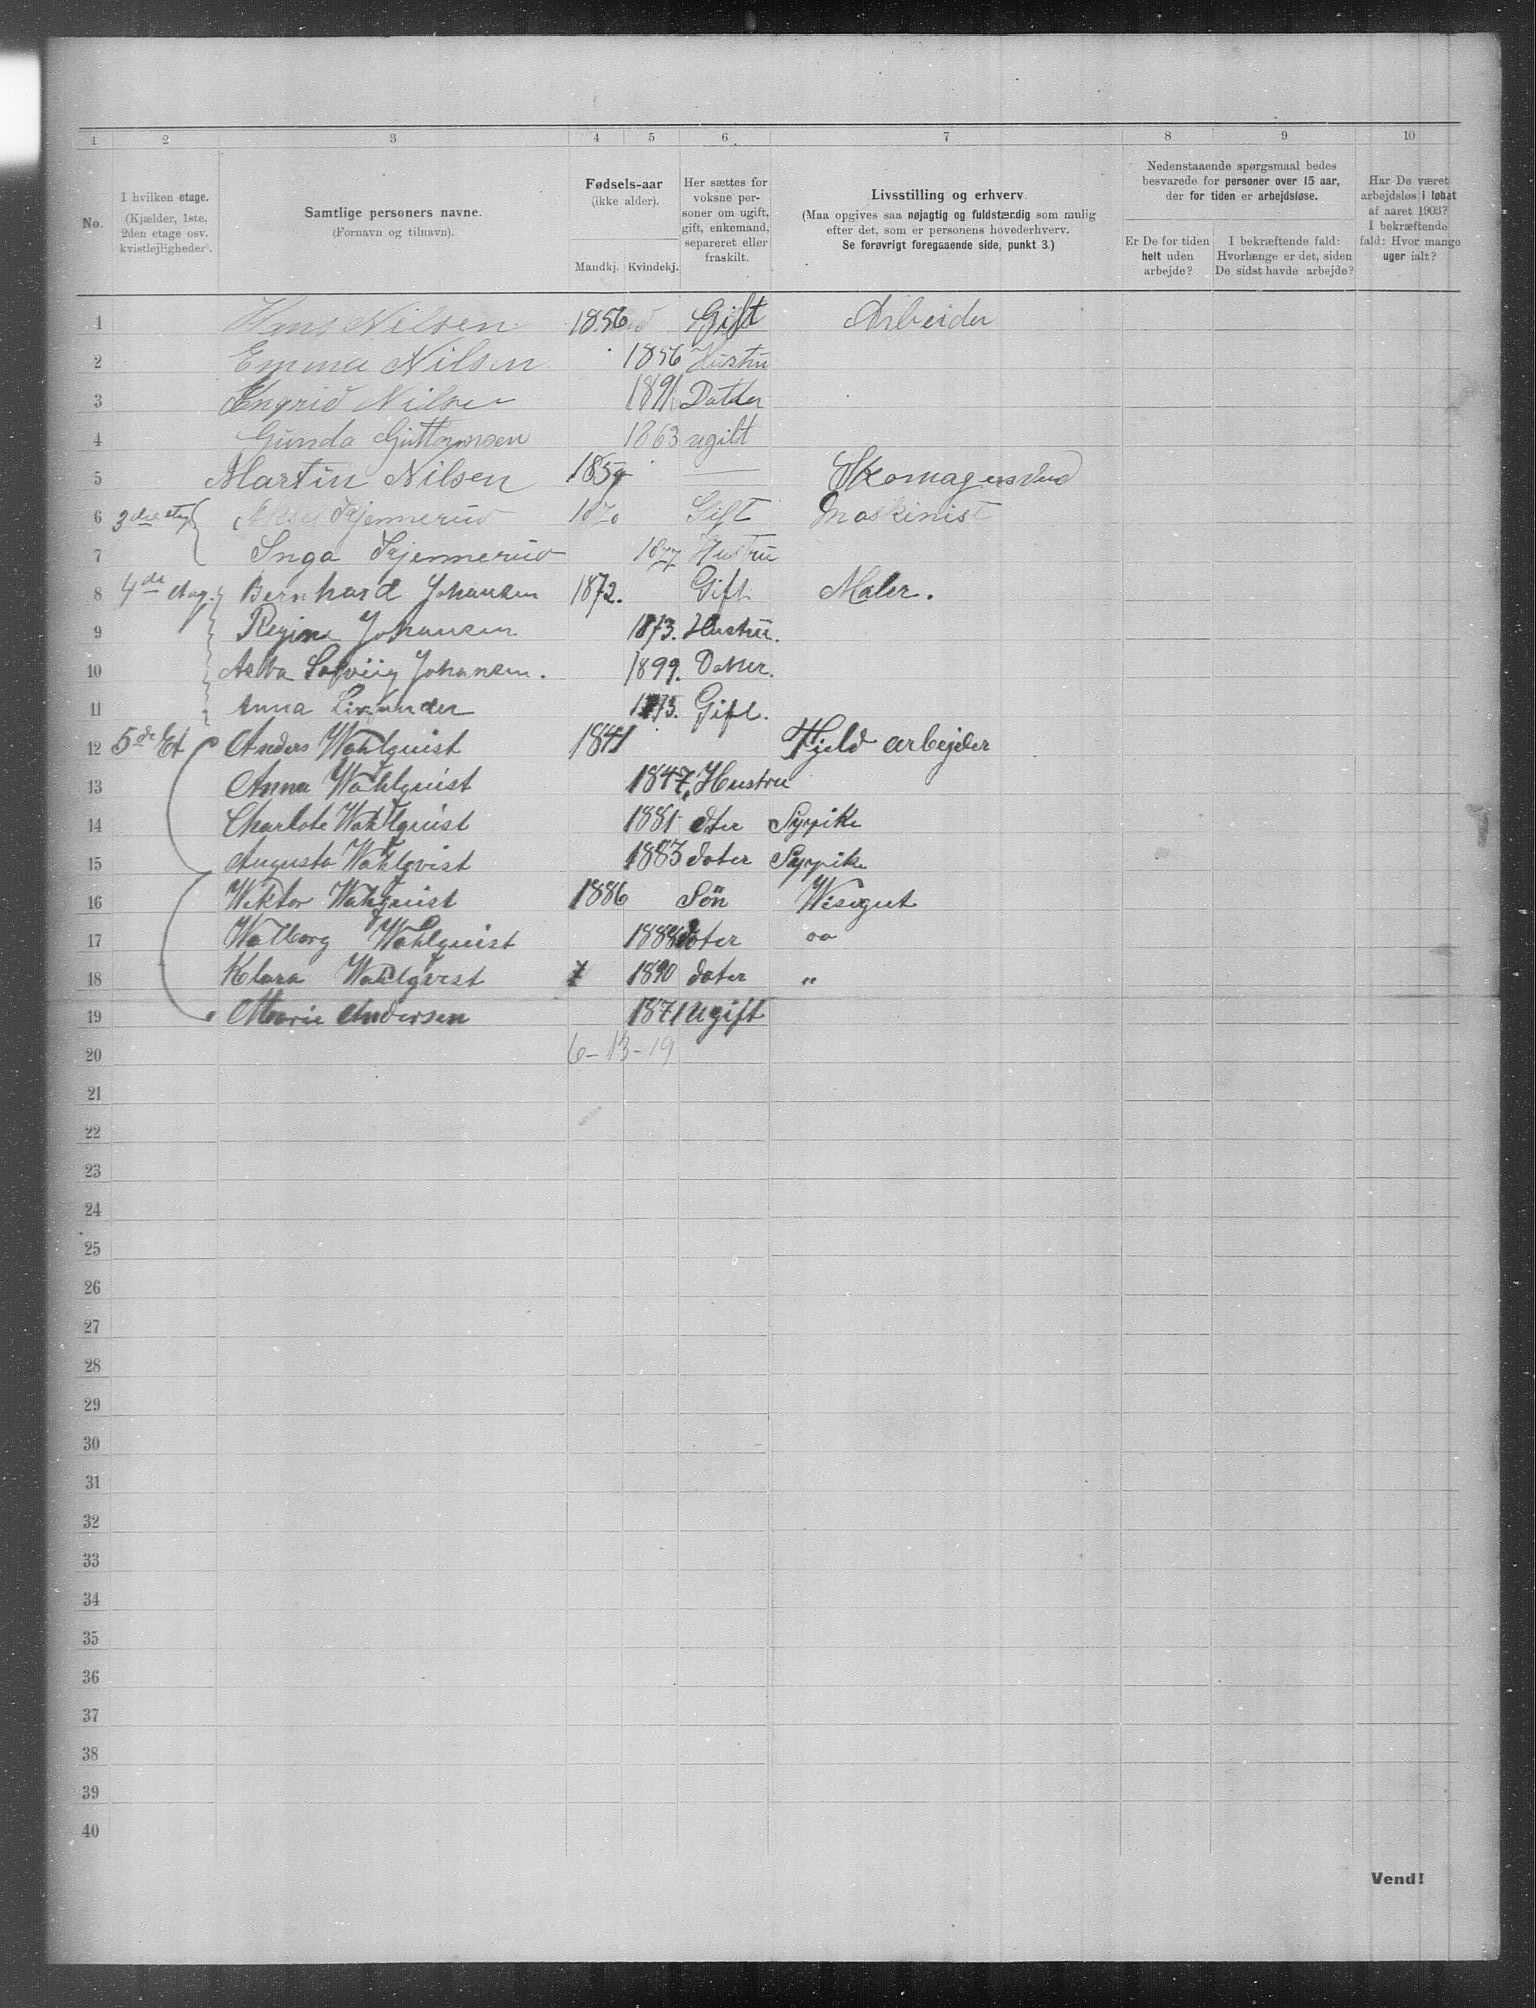 1 2 3 4 5 6 7 8 9 10
No.
I hvilken etage.
(Kjælder, 1ste,
2den etage osv.
kvistlejligheder).
Samtlige personers navne.
(Fornavn og tilnavn).
Fødsels-aar
(ikke alder).
Mandkj. Kvindekj.
Her sættes for
voksne per-
soner om ugift,
gift, enkemand,
separeret eller
fraskilt.
Livsstilling og erhverv.
(Maa opgives saa nøjagtig og fuldstærdig som mulig
efter det, som er personens hovederhverv.
Se forøvrigt foregaaende side, punkt 3.)
Nedenstaaende spørgsmaal bedes
besvarede for personer over 15 aar,
der for tiden er arbejdsløse.
Er De for tiden
helt uden
arbejde?
I bekræftende fald:
Hvorlænge er det, siden
De sidst havde arbejde?
Har De været
arbejdsløs i løbet
af aaret 1903?
I bekræftende
fald: Hvor mange
uger ialt?
1 Hans Nilsen 1856 Gift Arbeider
2 Emma Nilsen 1856 Hustru
3 Ingrid Nilsen 1891 Datter
4 Gunda Guttormsen 1863 ugift
5 Martin Nilsen 1854 — Skomagersvend
6 3die etg Aksel Kjennerud 1870 Gift Maskinist
7 Inga Kjennerud 1877 Hustru
8 4de etag. Bernhard Johansen 1872. Gift Maler.
9 Regine Johansen 1873. Hustru.
10 Asta Solveig Johansen. 1899. Datter.
11 Anna 1873. Gift.
12 5de Et Anders Wahlquist 1841 Fjeld arbejder
13 Anna Wahlquist 1847, Hustru
14 Charlote Wahlquist 1881 dter Sypike
15 Augusta Wahlqvist 1883 dater Sypike
16 Wiktor Wahlquist 1886 Søn Wisegut
17 Walborg Wahlquist 1888 dater oo
18 Klara Wahlqvist 1890 dater "
19 Marie Andersen 1871 Ugift
20 6-13-19
21
22
23
24
25
26
27
28
29
30
31
32
33
34
35
36
37
38
39
40
Vend!